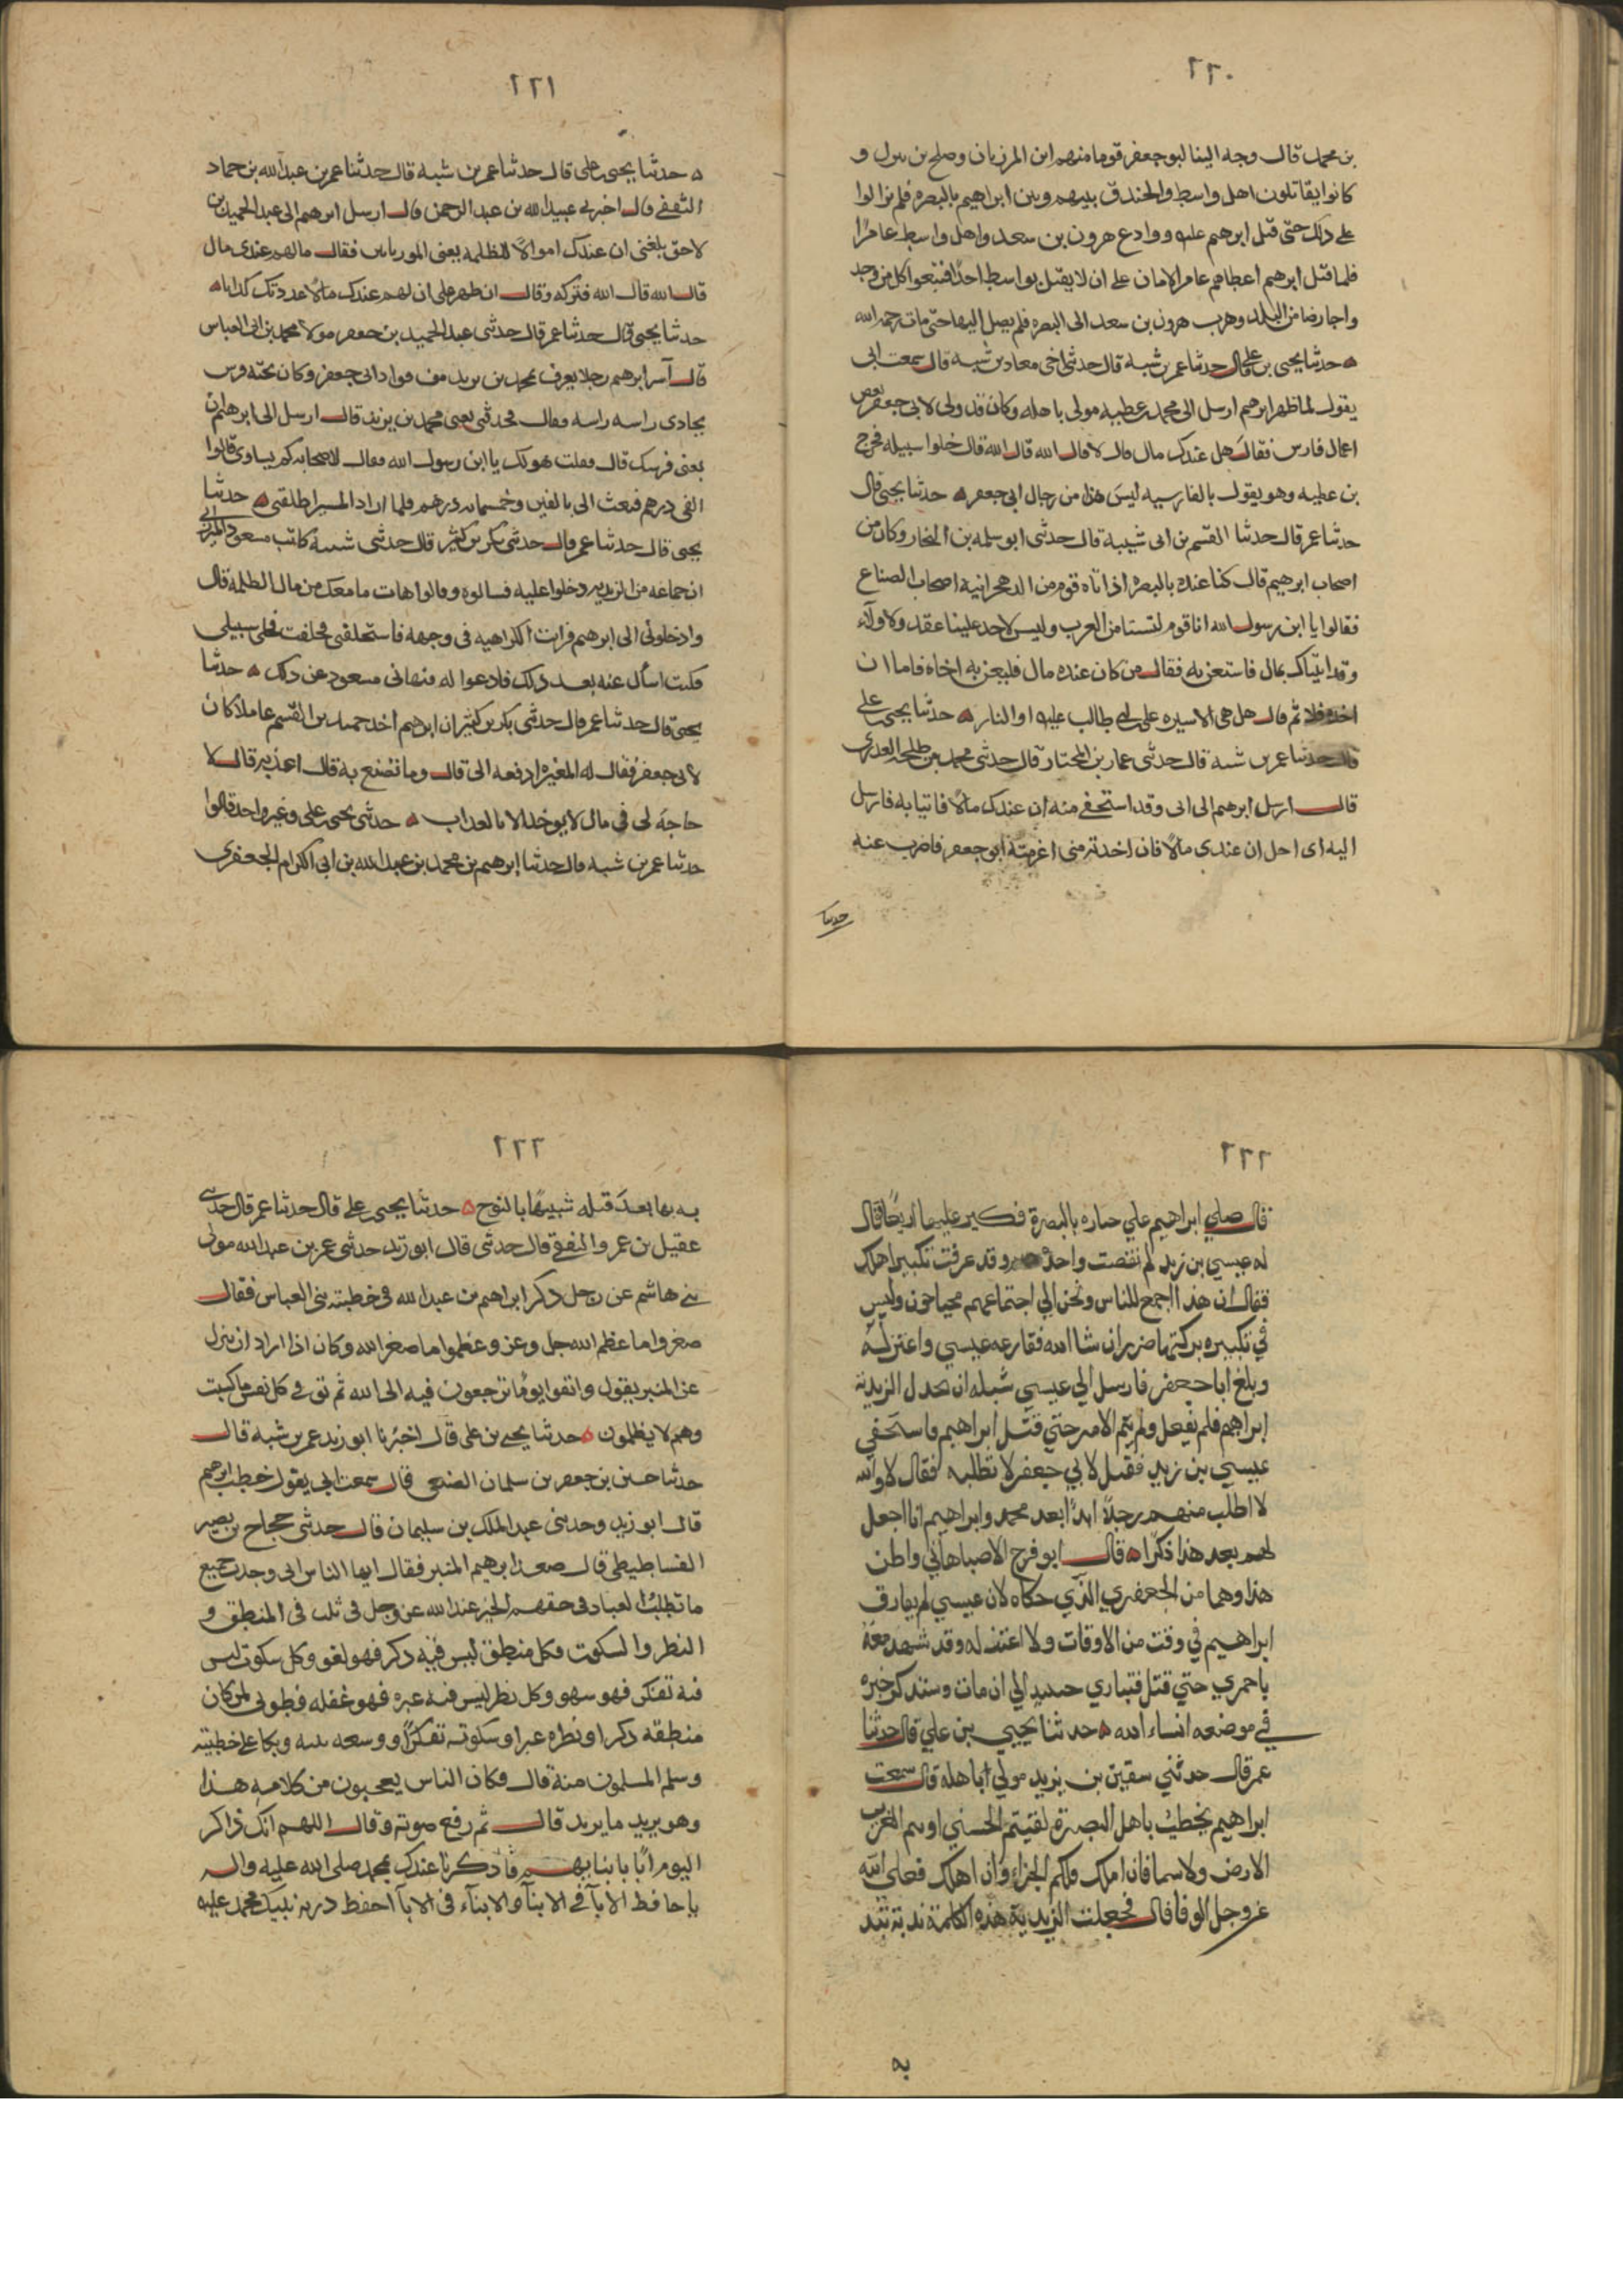 ٢٢٠
بن محمد قال وجه الينا ابو جعفر قوما منهم ابن المرزبان وصلح بن و
كانوا يقاتلون اهل واسط والخندق بينهم وبين ابراهيم بالبصره فلم يزالوا
على ذلك حتى قتل ابرهيم عليه ووادع هرون بن سعد واهل واسط عامرًا
فلما قتل ابرهيم اعطاهم عامر الامان على ان لا يقتل بواسط احدًا فتتبعوا كل من وجد
واجا رضا من البلد وهرب هرون بن سعد الى البصره فلم يصل اليها حتى مات رحمه الله
ه حدثنا يحيى بن على قال حدثنا عمر بن شبه قال حدثنى اخى معاد بن شبه قال سمعت ابى
يقول لما ظهر ابرهيم ارسل الى محمد بن عطيه مولى باهله وكان قد ولى لابى جعفر بعض
اعمال فارس فقال هل عندك مال قال لا قال الله قال الله قال خلوا سبيله فخرج
بن عطيه وهو يقول بالفارسيه ليس هذا من رجال ابى جعفر ه حدثنا يحيى قال
حدثنا عمر قال حدثنا القسم بن ابى شيبه قال حدثنى ابو سلمه بن النجار وكان من
اصحاب ابرهيم قال كنا عنده بالبصره اذ اتاه قوم من الدهجرانيه اصحاب الصناع
فقالوا يا ابن رسول الله انا قوم لسنا من العرب وليس لاحد علينا عقد ولا ولآء
وقد اتيناك بمال فاستعن به فقال من كان عنده مال فليعن به اخاه فاما ان
اخذه فلا ثم قال هل هى الا سيره على بن ابى طالب عليه او النار ه حدثنا يحيى بن على
قال حدثنا عمر بن شبه قال حدثنى عمار بن المختار قال حدثنى محمد بن طلحه العدرى
قال ارسل ابرهيم الى ابى وقد استخفى منه ان عندك مالًا فاتيا به فارسل
اليه اى احل ان عندى مالًا فان اخذته منى اغرمته ابو جعفر فاضرب عنه
حدثنا
٢٢١
ه حدثنا يحيى بن على قال حدثنا عمر بن شبه قال حدثنا عمر بن عبد الله بن حماد
الثقفى قال اخبرنى عبيد الله بن عبد الرحمن قال ارسل ابرهيم الى عبد الحميد بن
لاحق بلغنى ان عندك اموالًا للظلمه يعنى الموريان فقال ما لهم عندى مال
قال الله قال الله فتركه وقال ان ظهر على ان لهم عندك مالًا عددتك كذابا ه
حدثنا يحيى قال حدثنا عمر قال حدثنى عبد الحميد بن جعفر مولا محمد بن ابى العباس
قال آسر ابرهيم رجلا يعرف بمحمد بن يزيد من قواد ابى جعفر وكان تحته فرس
يحادى راسه راسه فقال فحدثنى يعنى محمد بن يزيد قال ارسل الى ابرهيم ان
بعنى فرسك قال فقلت هو لك يا ابن رسول الله فقال لاصحابه كم يساوى قالوا
الفى درهم فبعث الى بالفين وخمسمايه درهم فلما اراد المسير اطلقنى ه حدثنا
يحيى قال حدثنا عمر قال حدثنى بكر بن كثير قال حدثنى شيبه كاتب مسعود
ان جماعه من الزيديه دخلوا عليه فسالوه وقالوا هات ما معك من مال الظلمه قال
وادخلونى الى ابرهيم فرايت الكراهيه فى وجهه فاستحلفنى فحلفت فخلى سبيلى
فكنت اسأل عنه بعد ذلك فادعوا له فنهانى مسعود عن ذلك ه حدثنا
يحيى قال حدثنا عمر قال حدثنى بكر بن كثير ان ابرهيم اخذ حميد بن القسم عاملا كان
لابى جعفر فقال له المغيره ادفعه الى قال وما تصنع به قال اعذبه قال لا
حاجة لى فى مال لا يوخذ الا بالعذاب ه حدثنى يحيى بن على وغير واحد قالوا
حدثنا عمر بن شبه قال حدثنا ابرهيم بن محمد بن عبد الله بن ابى الكرام الجعفرى
٢٢٢
قال صلي ابراهيم علي جنازه بالبصرة فكبر عليها اربعًا فقال
له عيسي بن زيد لم نقصت واحدة وقد عرفت تكبير اهلك
فقال ان هذا اجمع للناس ونحن الي اجتماعهم محتاجون وليس
في تكبيره تركتها ضرر ان شا الله ففارقه عيسي واعتزله
وبلغ ابا جعفر فارسل الي عيسي يسله ان يخذل الزيدية
ابراهيم فلم يفعل ولم يتم الامر حتي قتل ابراهيم فاستخفي
عيسي بن زيد فقيل لابي جعفر لا تطلبه فقال لا والله
لا اطلب منهم رجلاً ابدًا بعد محمد وابراهيم انا اجعل
لهم بعد هذا ذكرًا ه قال ابو فرج الاصباهاني واظن
هذا وهما من الجعفري الذي حكاه لان عيسي لم يفارق
ابراهيم في وقت من الاوقات ولا اعتزله وقد شهد معه
باخمري حتي قتل فتواري حينيذ الي ان مات وسنذكر خبره
في موضعه انساء الله ه حدثنا يحيي بن علي قال حدثنا
عمر قال حدثني سفين بن يزيد مولي اباهله قال سمعت
ابراهيم يخطب باهل البصرة لقيتم الحسني
الارض ولا سما فان املك فلكم الجزاء وان اهلك فعلى الله
عز وجل الوفا قال فجعلت الزيدية هذه الكلمة ندبة تند
به
٢٢٣
به بها بعد قتله شبيهًا بالنوح ه حدثنا يحيى بن على قال حدثنا عمر قال حدثنى
عقيل بن عمرو الثقفى قال حدثنى قال ابو زيد حدثنى عمر بن عبد الله مولى
بنى هاشم عن رجل ذكر ابراهيم بن عبد الله فى خطبته بنى العباس فقال
صغروا ما عظم الله جل وعز وعظموا ما صغر الله وكان اذا اراد ان ينزل
عن المنبر يقول واتقوا يومًا ترجعون فيه الى الله ثم توفى كل نفس ما كسبت
وهم لا يظلمون ه حدثنا يحيى بن على قال اخبرنا ابو زيد عمر بن شبه قال
حدثنا حسين بن جعفر بن سلمان الضبعى قال سمعت ابى يقول خطب ابرهيم
قال ابو زيد وحدثنى عبد الملك بن سليمان قال حدثنى حجاج بن بصير
الفساطيطى قال صعد ابرهيم المنبر فقال ايها الناس انى وجدت جميع
ما تطلب العباد فى حقهم الخير عند الله عز وجل فى ثلث فى المنطق و
النظر والسكوت فكل منطق ليس فيه ذكر فهو لغو وكل سكوت ليس
فيه تفكر فهو سهو وكل نظر ليس فيه عبره فهو غفله فطوبى لمن كان
منطقه ذكرا ونظره عبرا وسكوته تفكرًا ووسعه بيته وبكا على خطيته
وسلم المسلمون منه قال وكان الناس يعجبون من كلامه هذا
وهو يريد ما يريد قال ثم رفع صوته وقال اللهم انك ذاكر
اليوم ابًا بابنا بهم فاذكرنا عندك بمحمد صلى الله عليه واله
يا حافظ الابآ فى الابنآ والابنآء فى الابآ احفظ ذرية نبيك محمد عليه